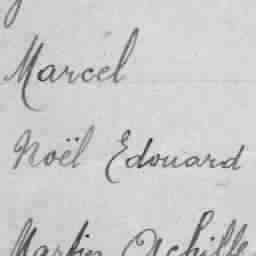 Marcel
Noël Edouard
Martin Achille